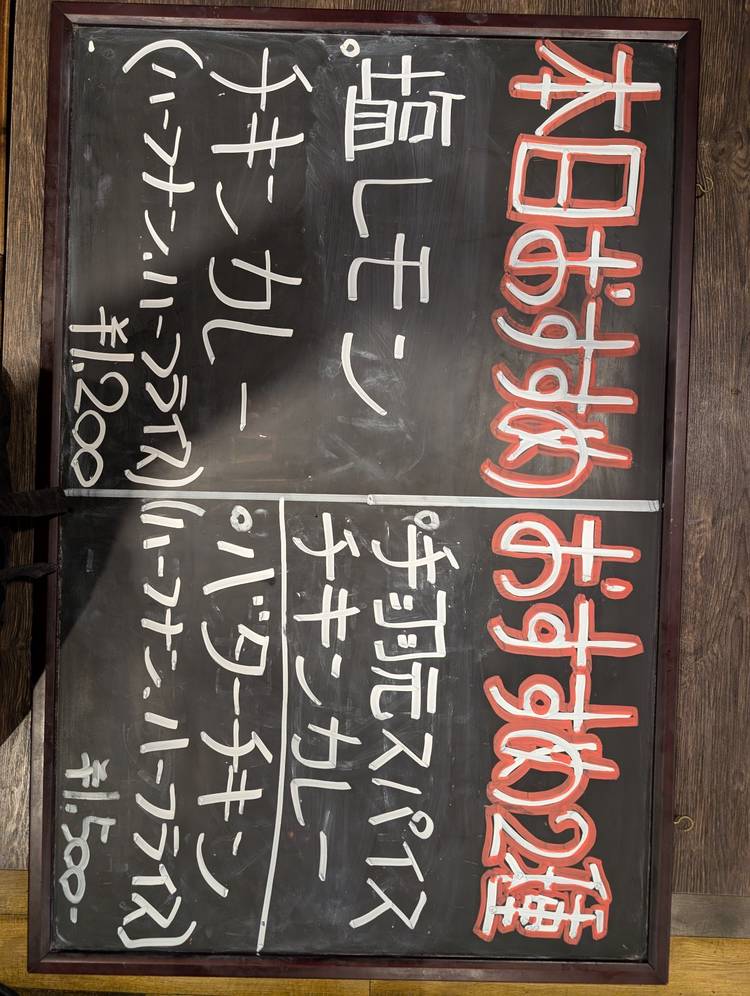 本日おすすめ
。塩レモン
チキンカレー
(ハーフナン、ハーフライス)
¥1,200
おすすめ2種
。手羽元スパイス
チキンカレー
。バターチキン
(ハーフナン、ハーフライス)
¥1,500-